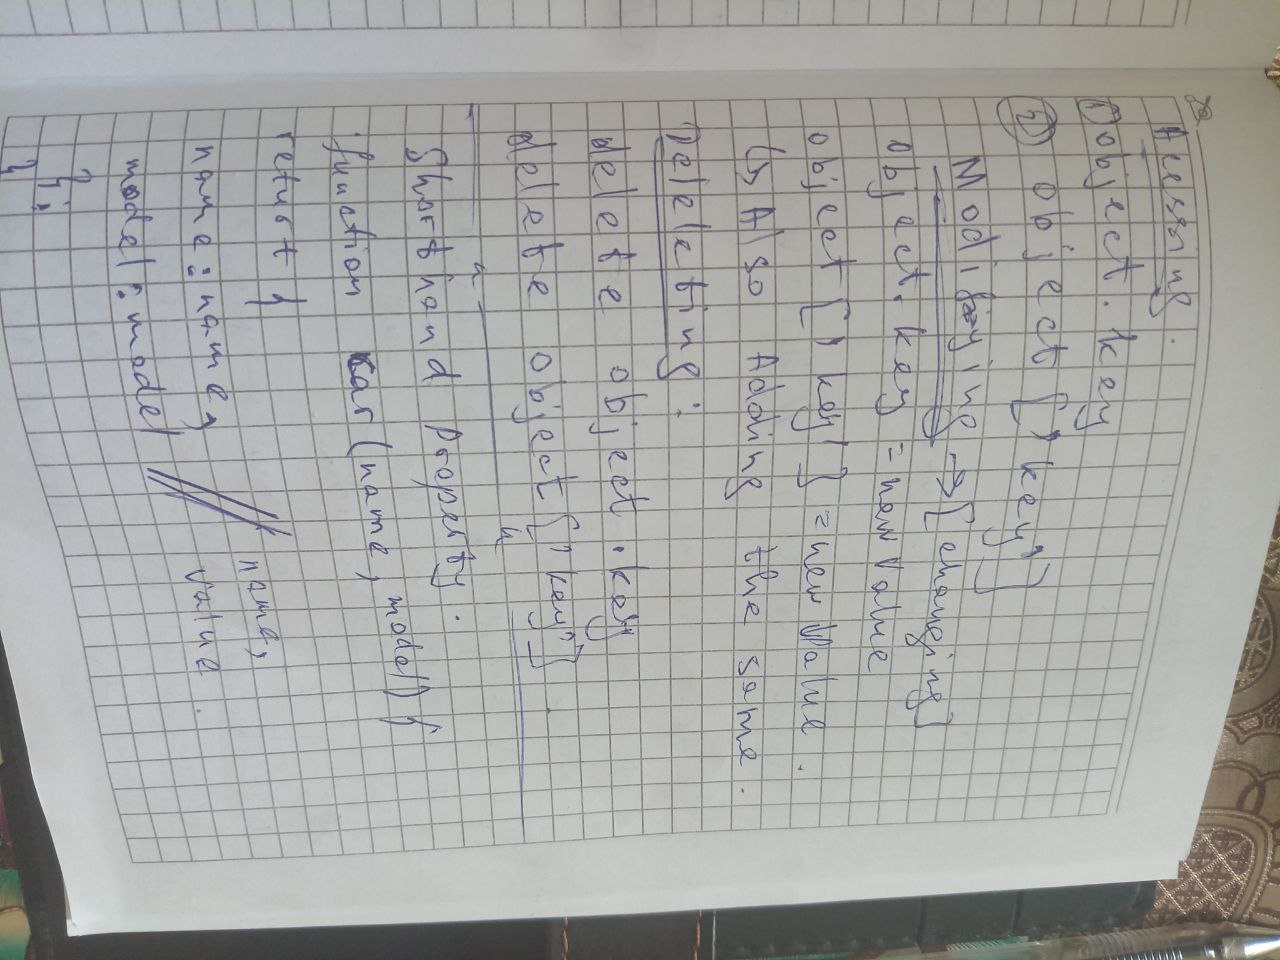 Acessing.
① object.key
② object['key']
Modifying → [changeing]
object.key = new value
object['key'] = new value.
↳ Also Adding the same.
Deleteting:
delete object.key
delete object['key"]
Shorthand property.
function car(name, model){
return {
name: name, // name,
model: model value
};
}